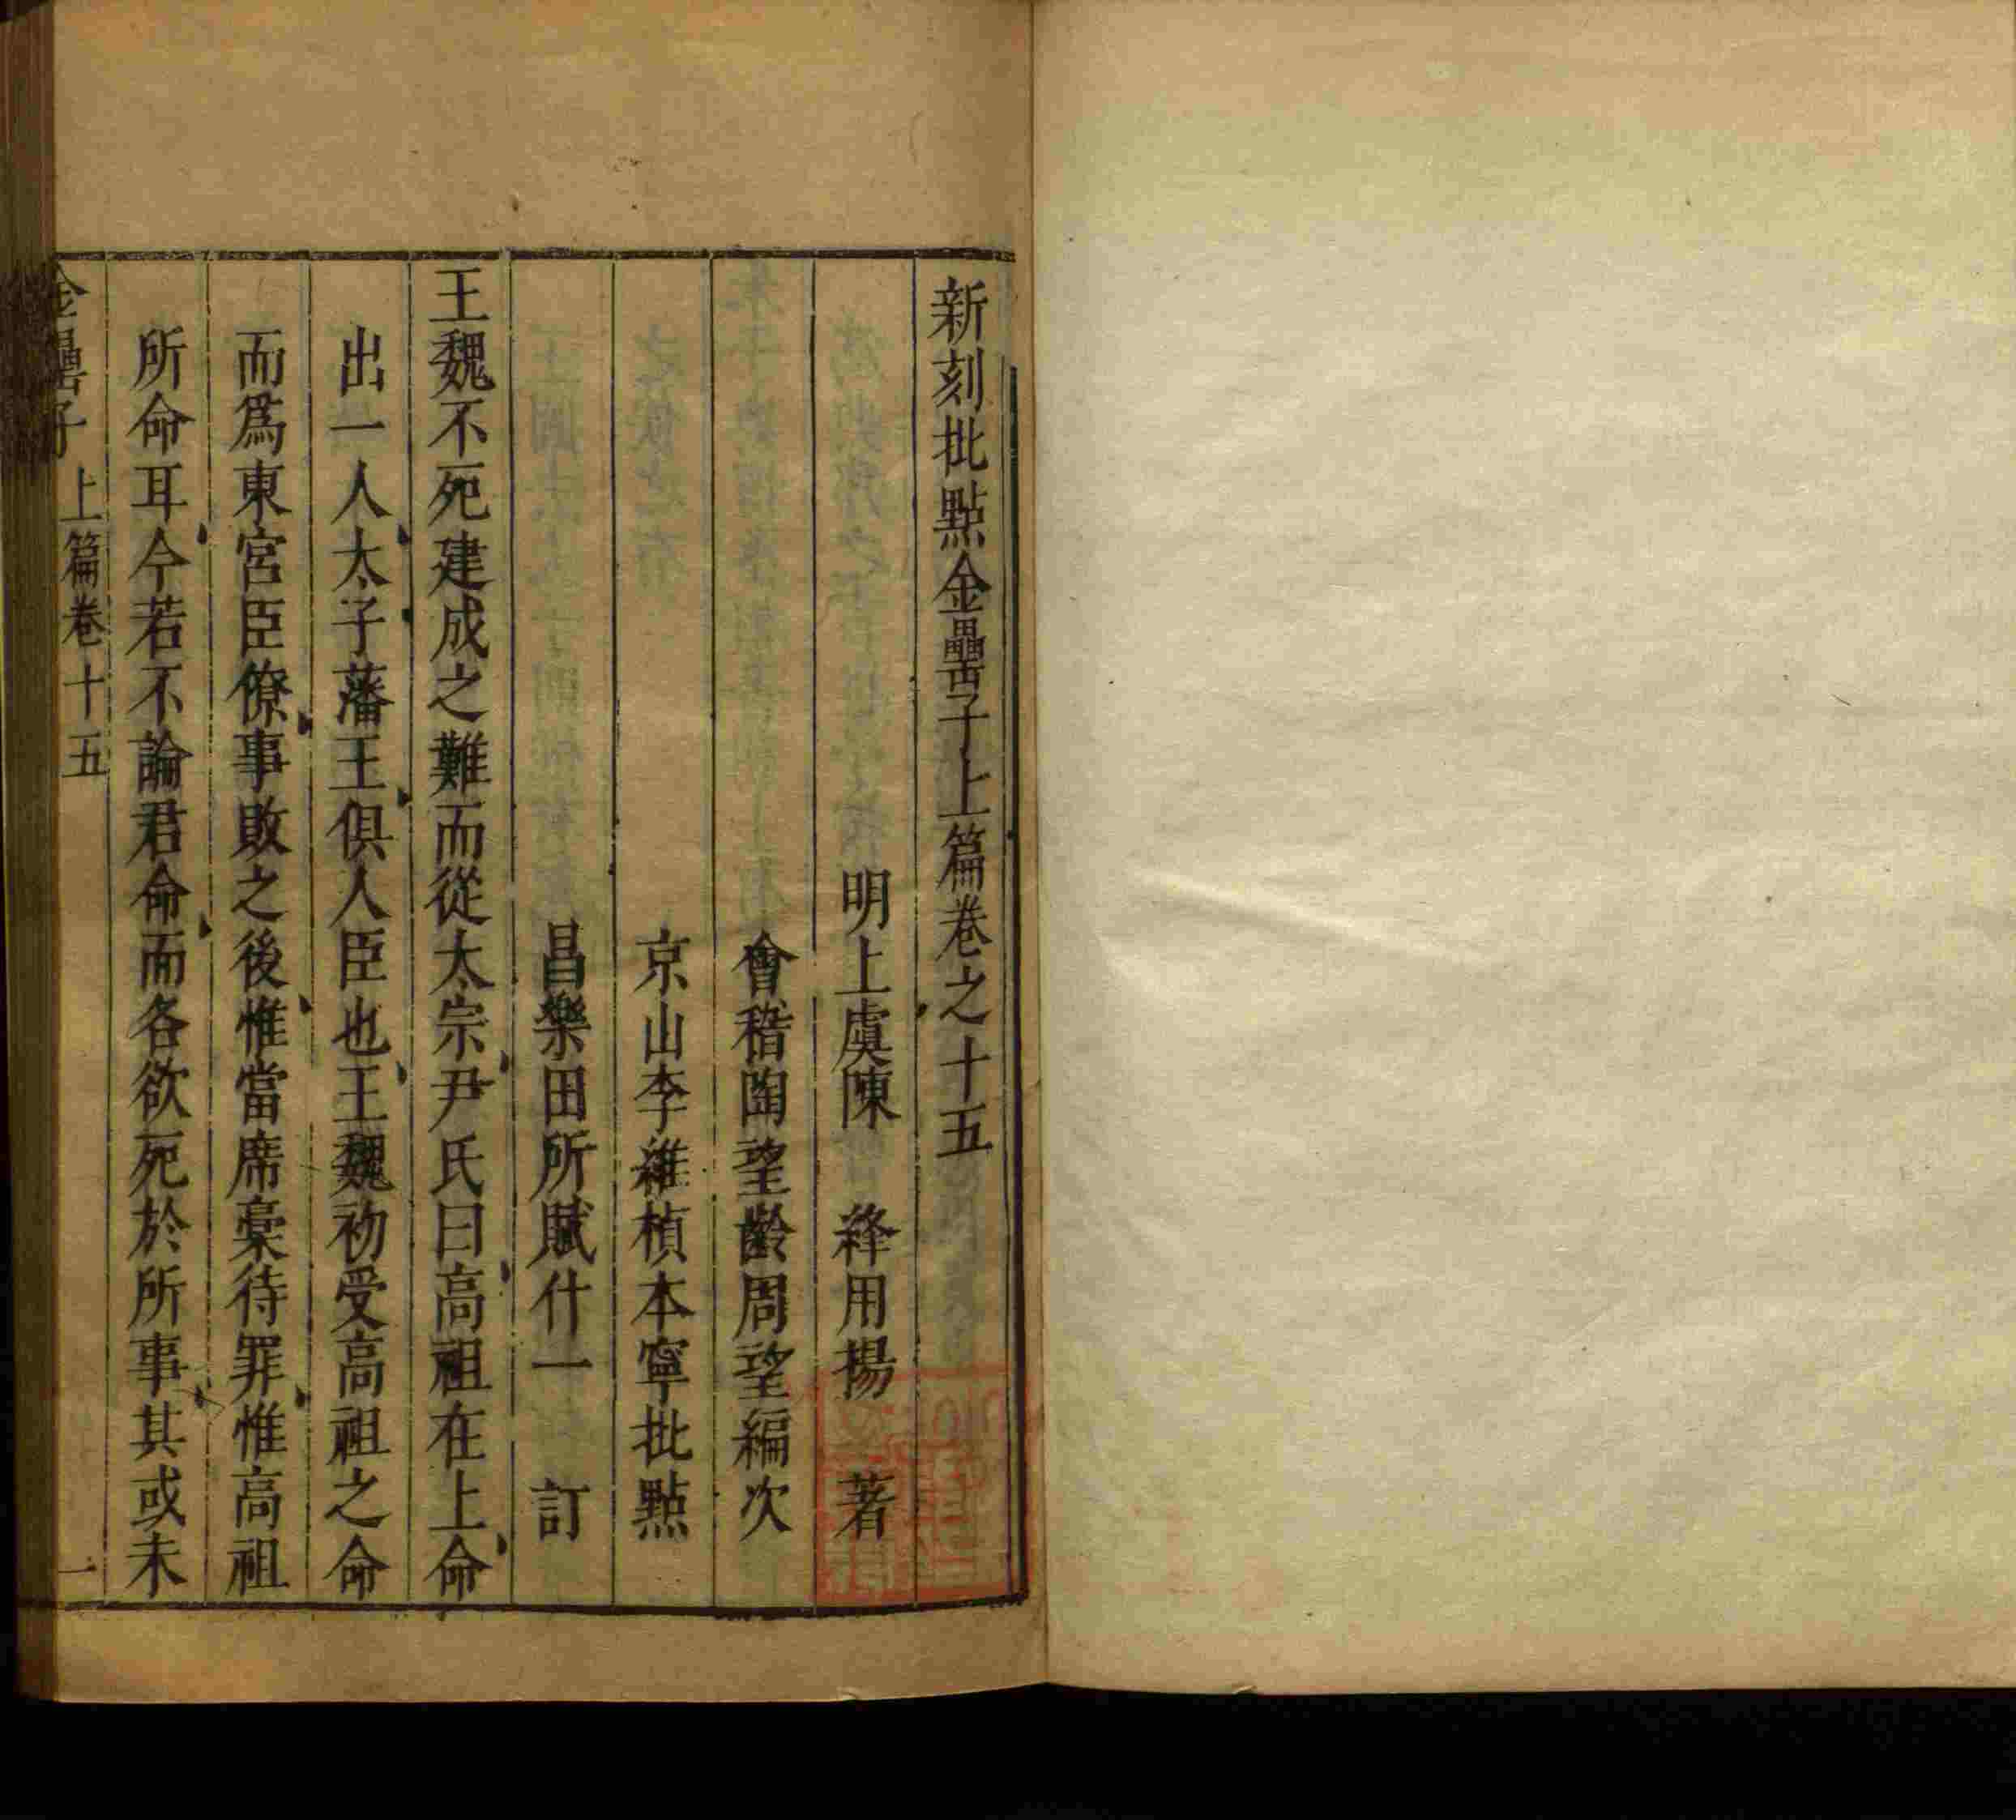 新刻批點金罍子上篇卷之十五
明上虞陳 絳用揚 著
會稽陶望齡周望編次
京山李維楨本寧批點
昌樂田所賦什一 訂
王魏不死建成之難而從太宗尹氏曰高祖在上命
出一人太子藩王俱人臣也王魏初受高祖之命
而爲東宮臣僚事敗之後惟當席藁待罪惟高祖
所命耳今若不論君命而各欲死於所事其或未
金罍子 上篇卷十五 一